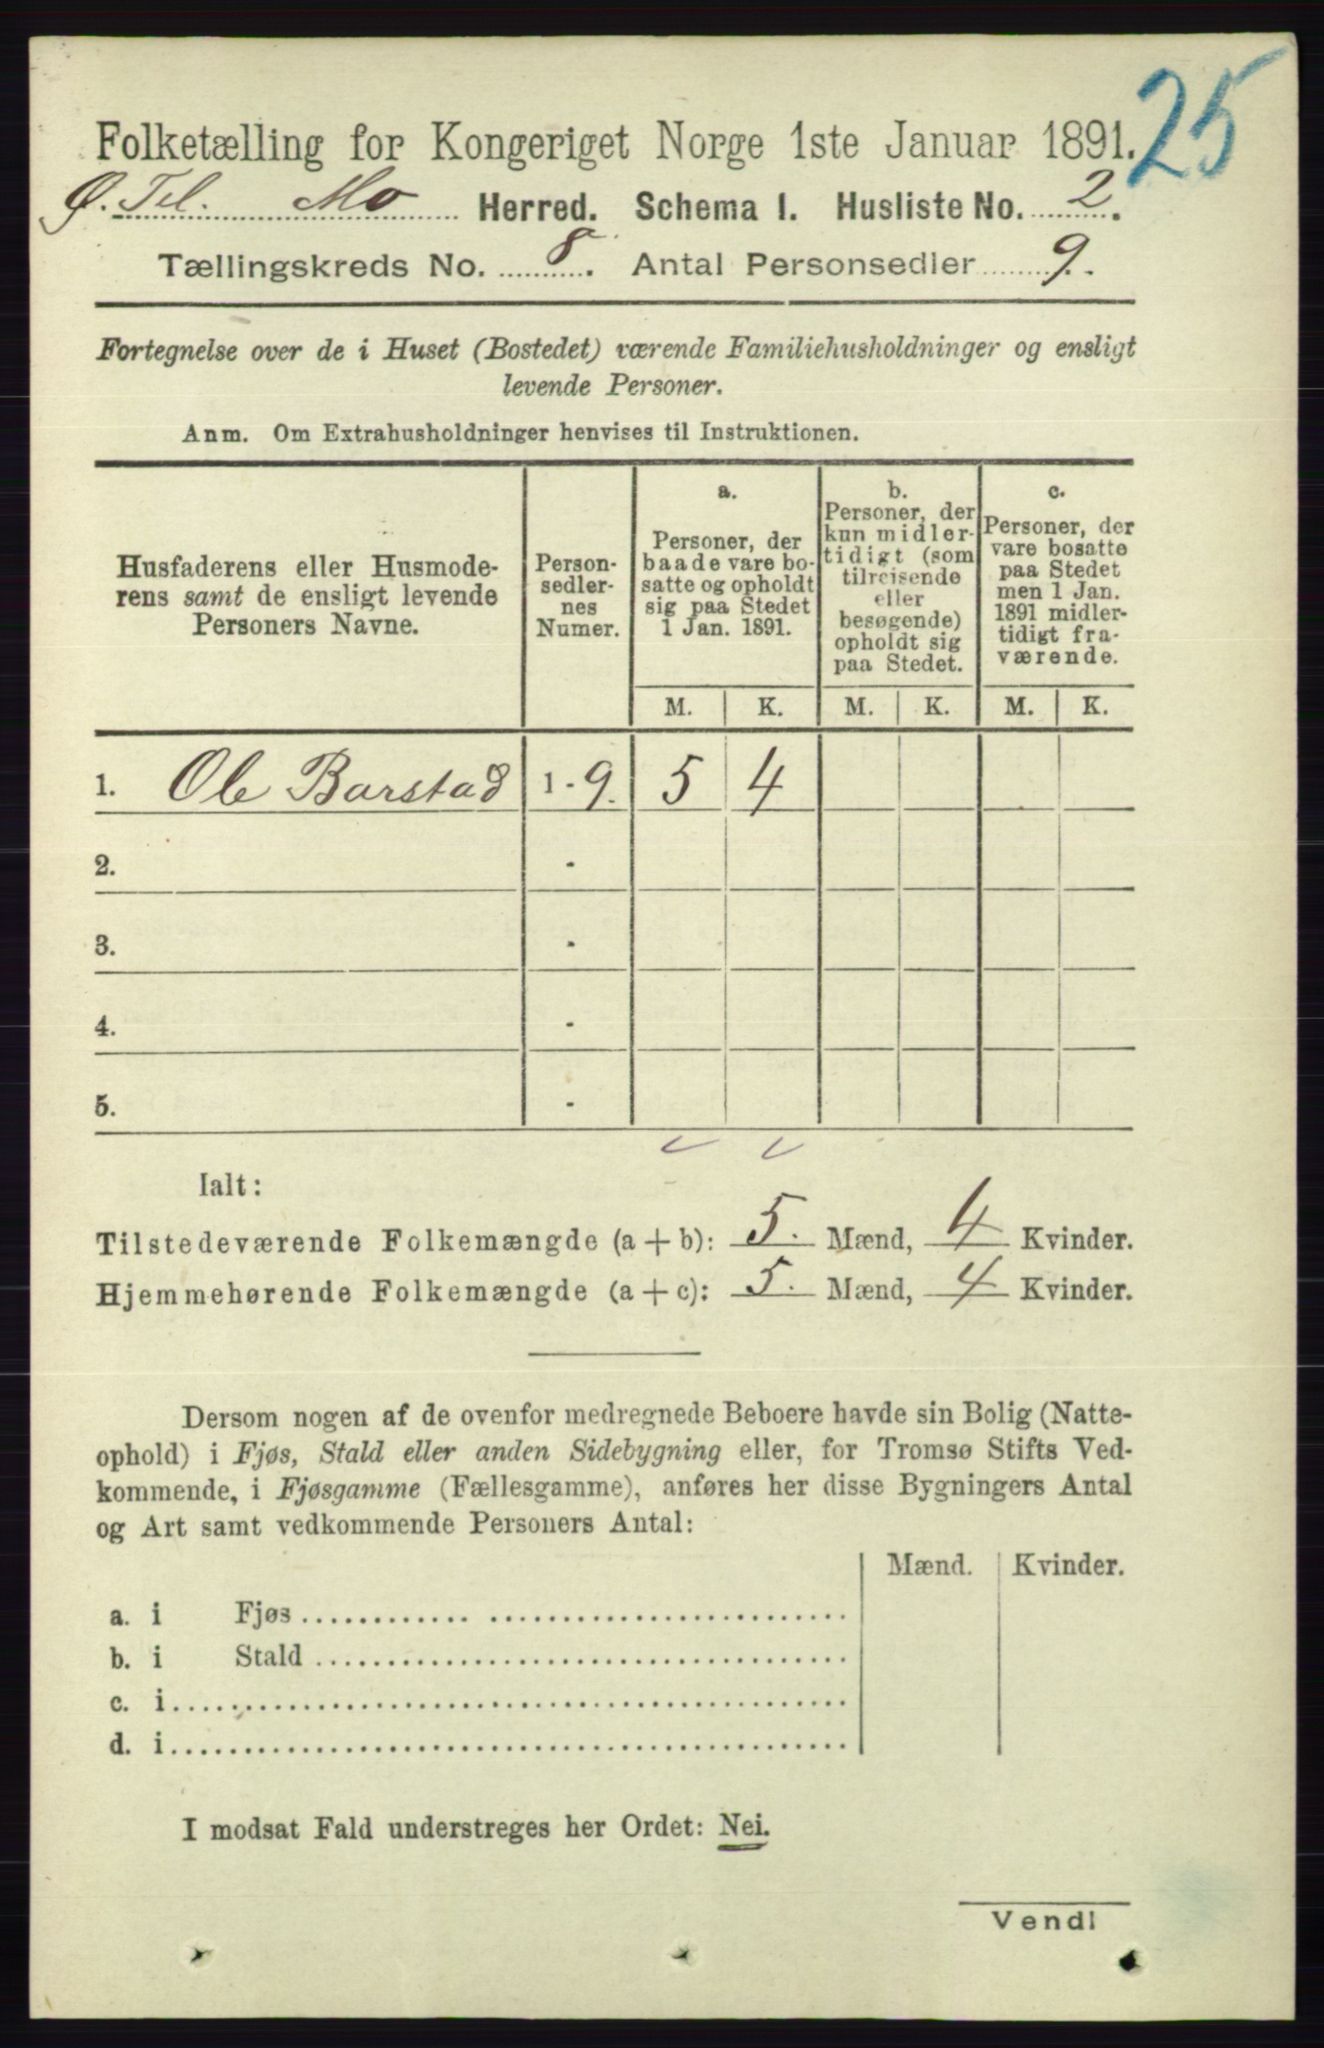 25
Folketælling for Kongeriget Norge 1ste Januar 1891.
Ø. Tel. Mo Herred. Schema I. Husliste No. 2.
Tællingskreds No. 8. Antal Personsedler 9.
Fortegnelse over de i Huset (Bostedet) værende Familiehusholdninger og ensligt
levende Personer.
Anm. Om Extrahusholdninger henvises til Instruktionen.
Husfaderens eller Husmode-
rens samt de ensligt levende
Personers Navne.
Person-
sedler-
nes
Numer.
a.
Personer, der
baade vare bo-
satte og opholdt
sig paa Stedet
1 Jan. 1891.
b.
Personer, der
kun midler-
tidigt (som
tilreisende
eller
besøgende)
opholdt sig
paa Stedet.
c.
Personer, der
vare bosatte
paa Stedet
men 1 Jan.
1891 midler-
tidigt fra-
værende.
M. K. M. K. M. K.
1. Ole Barstad 1 - 9. 5 4
2. -
3. -
4. -
5. -
Ialt:
Tilstedeværende Folkemængde (a + b): 5. Mænd, 4 Kvinder.
Hjemmehørende Folkemængde (a + c): 5. Mænd, 4 Kvinder.
Dersom nogen af de ovenfor medregnede Beboere havde sin Bolig (Natte-
ophold) i Fjøs, Stald eller anden Sidebygning eller, for Tromsø Stifts Ved-
kommende, i Fjøsgamme (Fællesgamme), anføres her disse Bygningers Antal
og Art samt vedkommende Personers Antal:
Mænd. Kvinder.
a. i Fjøs
b. i Stald
c. i
d. i
I modsat Fald understreges her Ordet: Nei.
Vend!